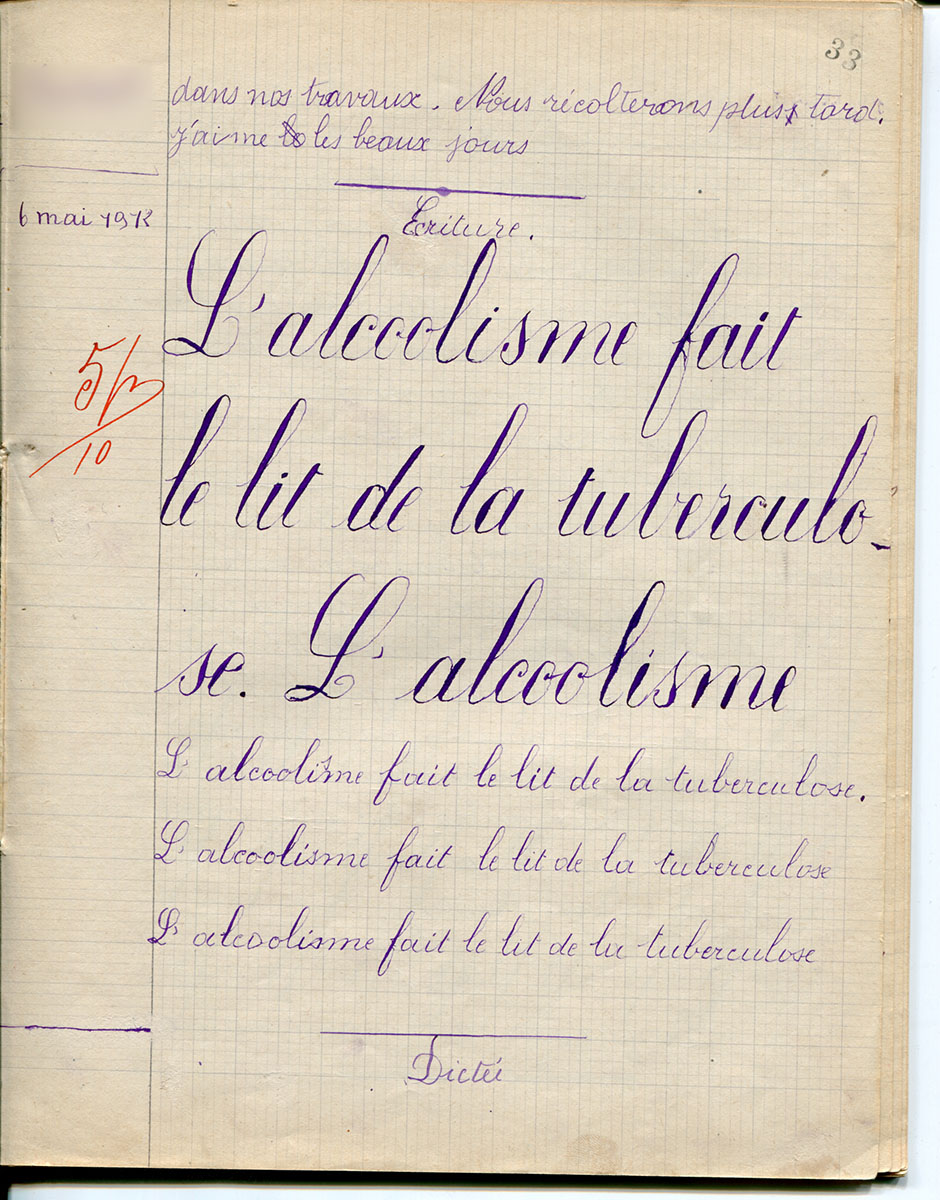 33
dans nos travaux. Nous récolterons plus tard.
j'aime les beaux jours
6 mai 1912
Ecriture.
L'alcoolisme fait
5/10
le lit de la tuberculo-
se. L'alcoolisme
L'alcoolisme fait le lit de la tuberculose.
L'alcoolisme fait le lit de la tuberculose
L'alcoolisme fait le lit de la tuberculose
Dictée